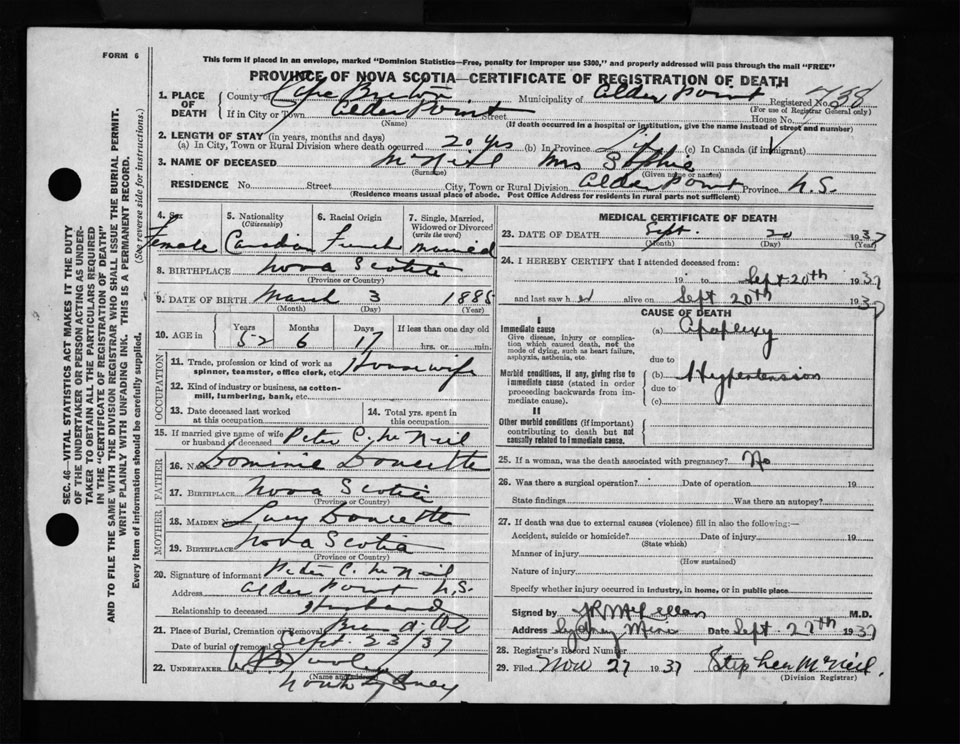 FORM 6
This form if placed in an envelope, marked "Dominion Statistics—Free, penalty for improper use $300," and properly addressed will pass through the mail "FREE"
PROVINCE OF NOVA SCOTIA—CERTIFICATE OF REGISTRATION OF DEATH
1. PLACE OF DEATH
County of Cape Breton Municipality of Alder Point Registered No. 738
(For use of Registrar General only)
If in City or Town Alder Point Street House No.
(Name) (If death occurred in a hospital or institution, give the name instead of street and number)
2. LENGTH OF STAY (in years, months and days)
(a) In City, Town or Rural Division where death occurred 20 yrs (b) In Province (c) In Canada (if immigrant)
3. NAME OF DECEASED McNeil Mrs Sophie
(Surname) (Given name or names)
RESIDENCE No. Street City, Town or Rural Division Alder Point Province N.S.
(Residence means usual place of abode. Post Office Address for residents in rural parts not sufficient)
4. Sex 5. Nationality (Citizenship) 6. Racial Origin 7. Single, Married, Widowed or Divorced (write the word)
Female Canadian French Married
8. BIRTHPLACE Nova Scotia
(Province or Country)
9. DATE OF BIRTH March 3 1885
(Month) (Day) (Year)
10. AGE in Years Months Days If less than one day old
52 6 17 hrs. or min.
OCCUPATION
11. Trade, profession or kind of work as spinner, teamster, office clerk, etc. Housewife
12. Kind of industry or business, as cotton-mill, lumbering, bank, etc.
13. Date deceased last worked at this occupation
14. Total yrs. spent in this occupation
15. If married give name of wife or husband of deceased Peter C. McNeil
FATHER
16. Dominic Doucette
17. BIRTHPLACE Nova Scotia
(Province or Country)
MOTHER
18. MAIDEN Lucy Doucette
19. BIRTHPLACE Nova Scotia
(Province or Country)
20. Signature of informant Peter C. McNeil
Address Alder Point N.S.
Relationship to deceased Husband
21. Place of Burial, Cremation or Removal
Date of burial or removal Sept. 23/37
22. UNDERTAKER
(Name and address)
North Sydney
MEDICAL CERTIFICATE OF DEATH
23. DATE OF DEATH Sept. 20 1937
(Month) (Day) (Year)
24. I HEREBY CERTIFY that I attended deceased from:
19 to Sept 20th 1937
and last saw her alive on Sept 20th 1937
CAUSE OF DEATH
I
Immediate cause
Give disease, injury or complication which caused death, not the mode of dying, such as heart failure, asphyxia, asthenia, etc.
(a) Apoplexy
due to
Morbid conditions, if any, giving rise to immediate cause (stated in order proceeding backwards from immediate cause).
(b) Hypertension
due to
(c)
II
Other morbid conditions (if important) contributing to death but not causally related to immediate cause.
25. If a woman, was the death associated with pregnancy? No
26. Was there a surgical operation? Date of operation 19
State findings Was there an autopsy?
27. If death was due to external causes (violence) fill in also the following:—
Accident, suicide or homicide? Date of injury 19
(State which)
Manner of injury
(How sustained)
Nature of injury
Specify whether injury occurred in industry, in home, or in public place
Signed by M.D.
Address Sydney Mines Date Sept. 27th 1937
28. Registrar's Record Number
29. Filed Nov 27 1937 Stephen McNeil
(Division Registrar)
SEC. 46—VITAL STATISTICS ACT MAKES IT THE DUTY
OF THE UNDERTAKER OR PERSON ACTING AS UNDER-
TAKER TO OBTAIN ALL THE PARTICULARS REQUIRED
IN THE "CERTIFICATE OF REGISTRATION OF DEATH"
AND TO FILE THE SAME WITH THE DIVISION REGISTRAR WHO SHALL ISSUE THE BURIAL PERMIT.
WRITE PLAINLY WITH UNFADING INK. THIS IS A PERMANENT RECORD.
Every item of information should be carefully supplied. (See reverse side for instructions.)